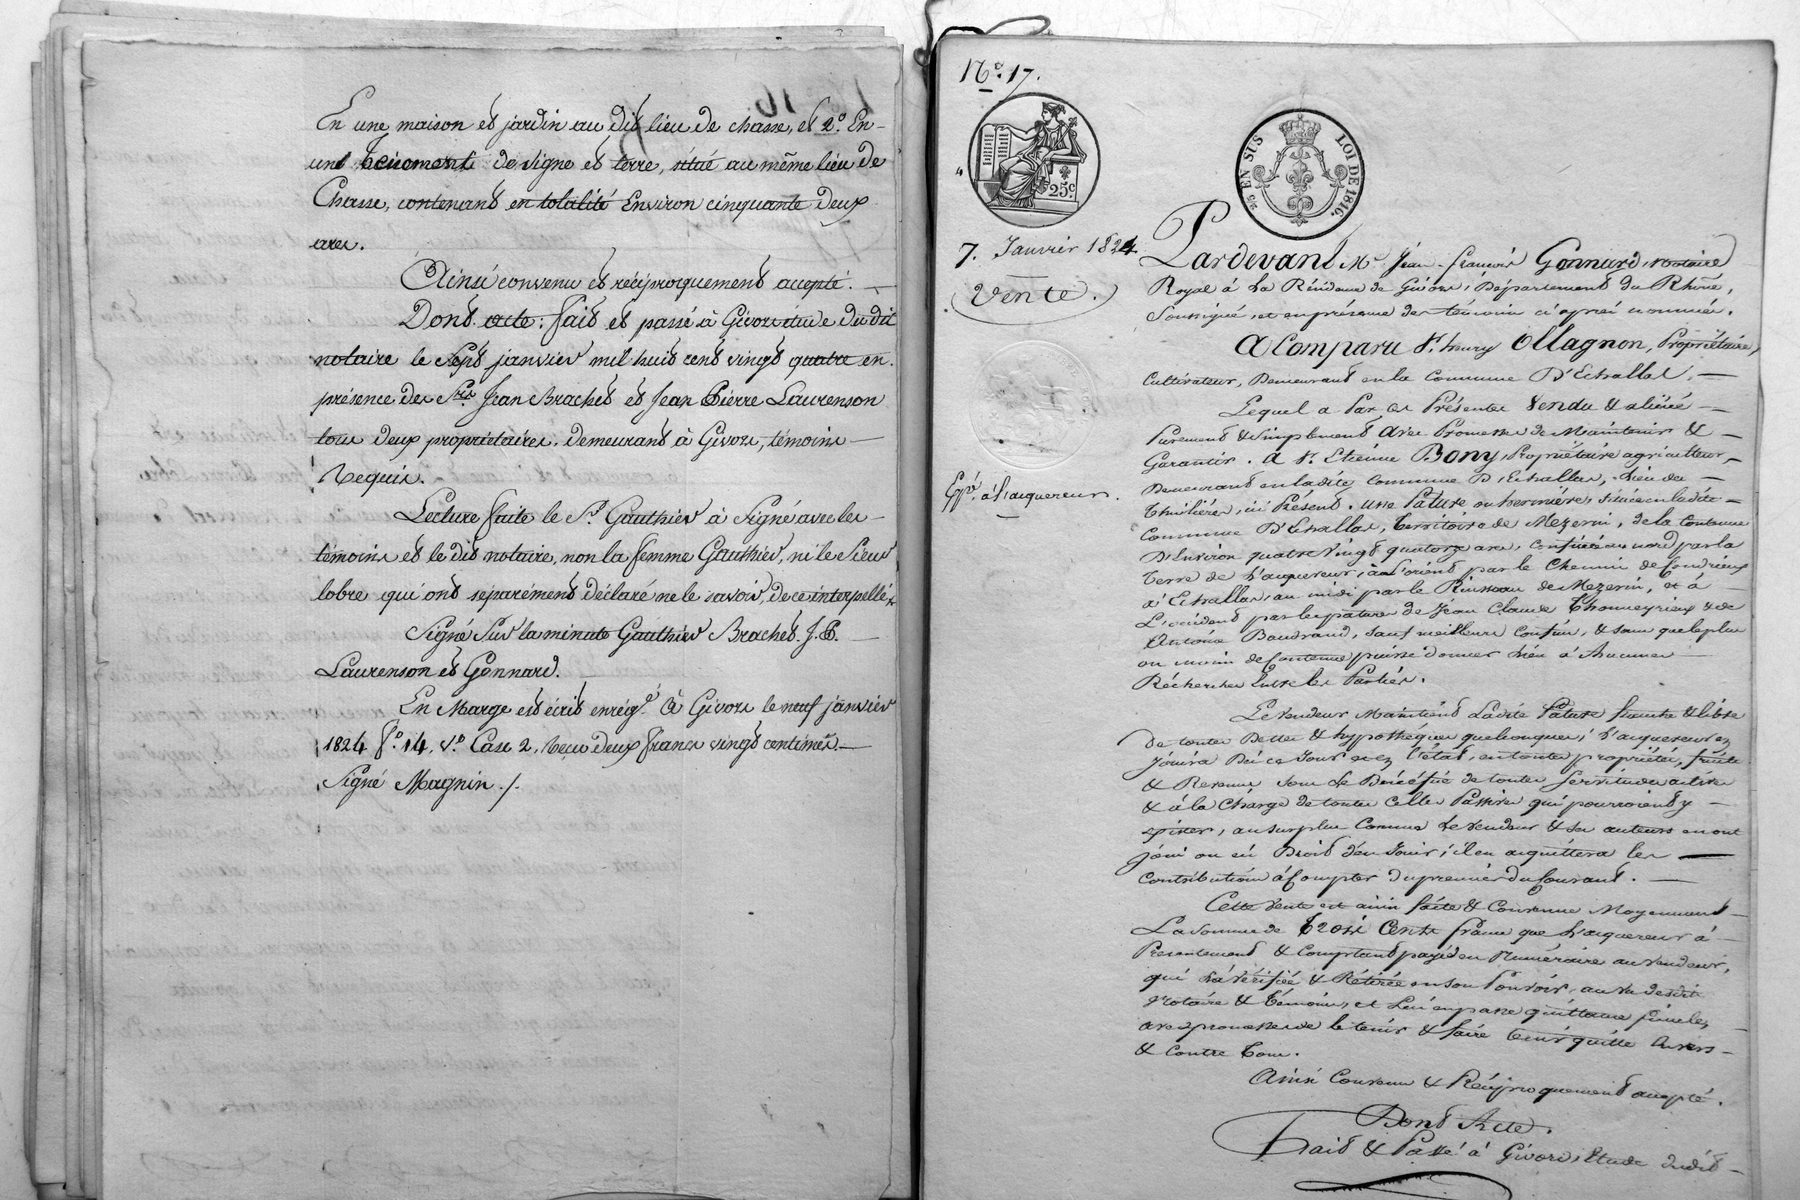 En une maison et jardin au dit lieu de chasse, et 2° En-
une tènement de vigne et terre, situé au même lieu de
Chasse, contenant en totalité Environ cinquante Deux
ares.
Ainsi convenu et réciproquement accepté. —
Dont acte: fait et passé à Givors étude du dit
notaire le sept janvier mil huit cent vingt quatre en
présence des Srs Jean Brachet et Jean Pierre Laurenson
tous deux propriétaires, demeurant à Givors, témoins —
Requis.
Lecture faite le Sr Gauthier à Signé avec les —
témoins et le dit notaire, non la femme Gauthier, ni le Sieur
lobre qui ont séparément déclaré ne le savoir, de ce interpellés
Signé Sur la minute Gauthier Brachet J. P. —
Laurenson et Gonnard.
En Marge est écrit enregé à Givors le neuf janvier
1824 f° 14. v° Case 2, reçu Deux francs vingt centimes —
Signé Magnin ./.
N° 17.
25c.
25 EN SUS LOI DE 1816.
7. Janvier 1824
(Vente.)
Expé à l'acquereur.
Pardevant Me Jean-françois Gonnard, notaire
Royal à La Résidence de Givors, Département du Rhône,
Soussigné, et en présence des témoins ci après nommés.
A Comparu Sr henry Ollagnon, Propriétaire,
Cultivateur, Demeurant en la Commune D'Echallas. —
Lequel a Par ces Présentes Vendu & aliéné —
Purement & Simplement Avec Promesse de Maintenir & —
Garantir. A Sr Etienne Bony, Propriétaire agriculteur, —
Demeurant en ladite Commune D'Echallas, lieu de —
, ici Présent. Une Pature ou hermière, située en la dite —
Commune D'Echallas, Territoire de Mezerin, de la Contenue
D'Environ quatre vingt quatorze ares, confinée au nord par la
terre de l'acquereur, à L'orient par le Chemin de
à Echallas, au midi par le Ruisseau de Mezerin, et à —
L'occident par les patures de Jean Claude Thomeyrieux & de
Antoine Baudrand, Sauf meilleurs Confins, & sans que le plus
ou moins de Contenue puisse donner Lieu à Aucunes —
Récherches Entre les Parties.
Le vendeur Maintient Ladite Pature franche & libre
de toutes Dettes & hypothèques quelconques; l'acquereur en
Jouira Dès ce Jour en l'état, en toute propriété, fruits
& Revenus Sous le Bénéfice de toutes Servitudes actives
& à la Charge de toutes Celles Passives qui pourroient y —
exister, au surplus Comme Le vendeur & ses auteurs en ont
joui ou eu Droit d'en Jouir; il en acquittera les —
Contributions à Compter Du premier Du Courant. —
Cette Vente est ainsi faite & Convenue Moyennant —
La Somme de Trois Cents francs que L'acquereur à —
Présentement & Comptant payé en Numéraire au vendeur,
qui L'a vérifiée & Rétirée en son Pouvoir, au vu desdits
Notaire & témoins, et Lui en passe quittance finale,
avec promesse de le tenir & faire tenir quitte Envers —
& Contre tous.
Ainsi Convenu & Réciproquement accepté.
Dont Acte.
Fait & Passé à Givors, Etude dudit —